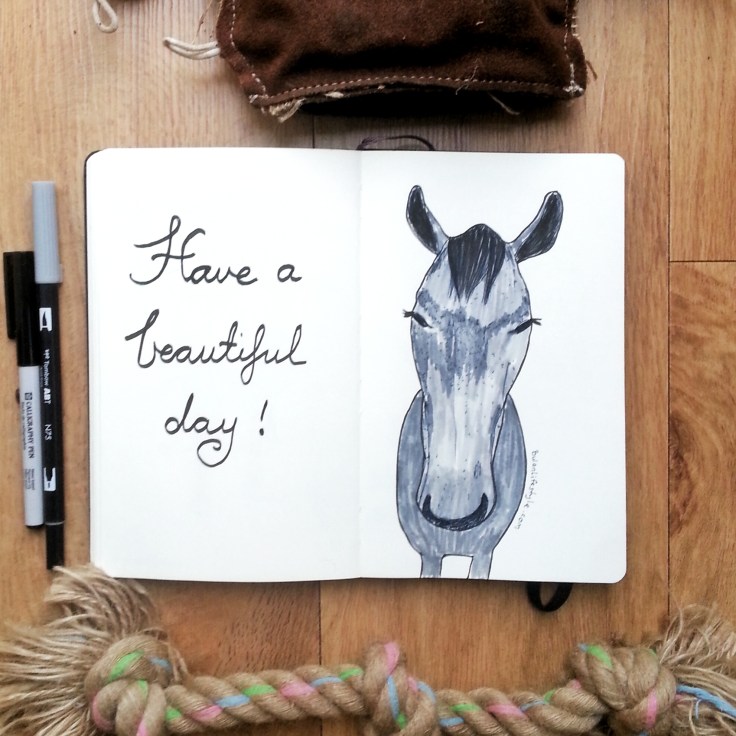 Have a
beautiful
day !
Tombow ABT
N75
CALLIGRAPHY PEN